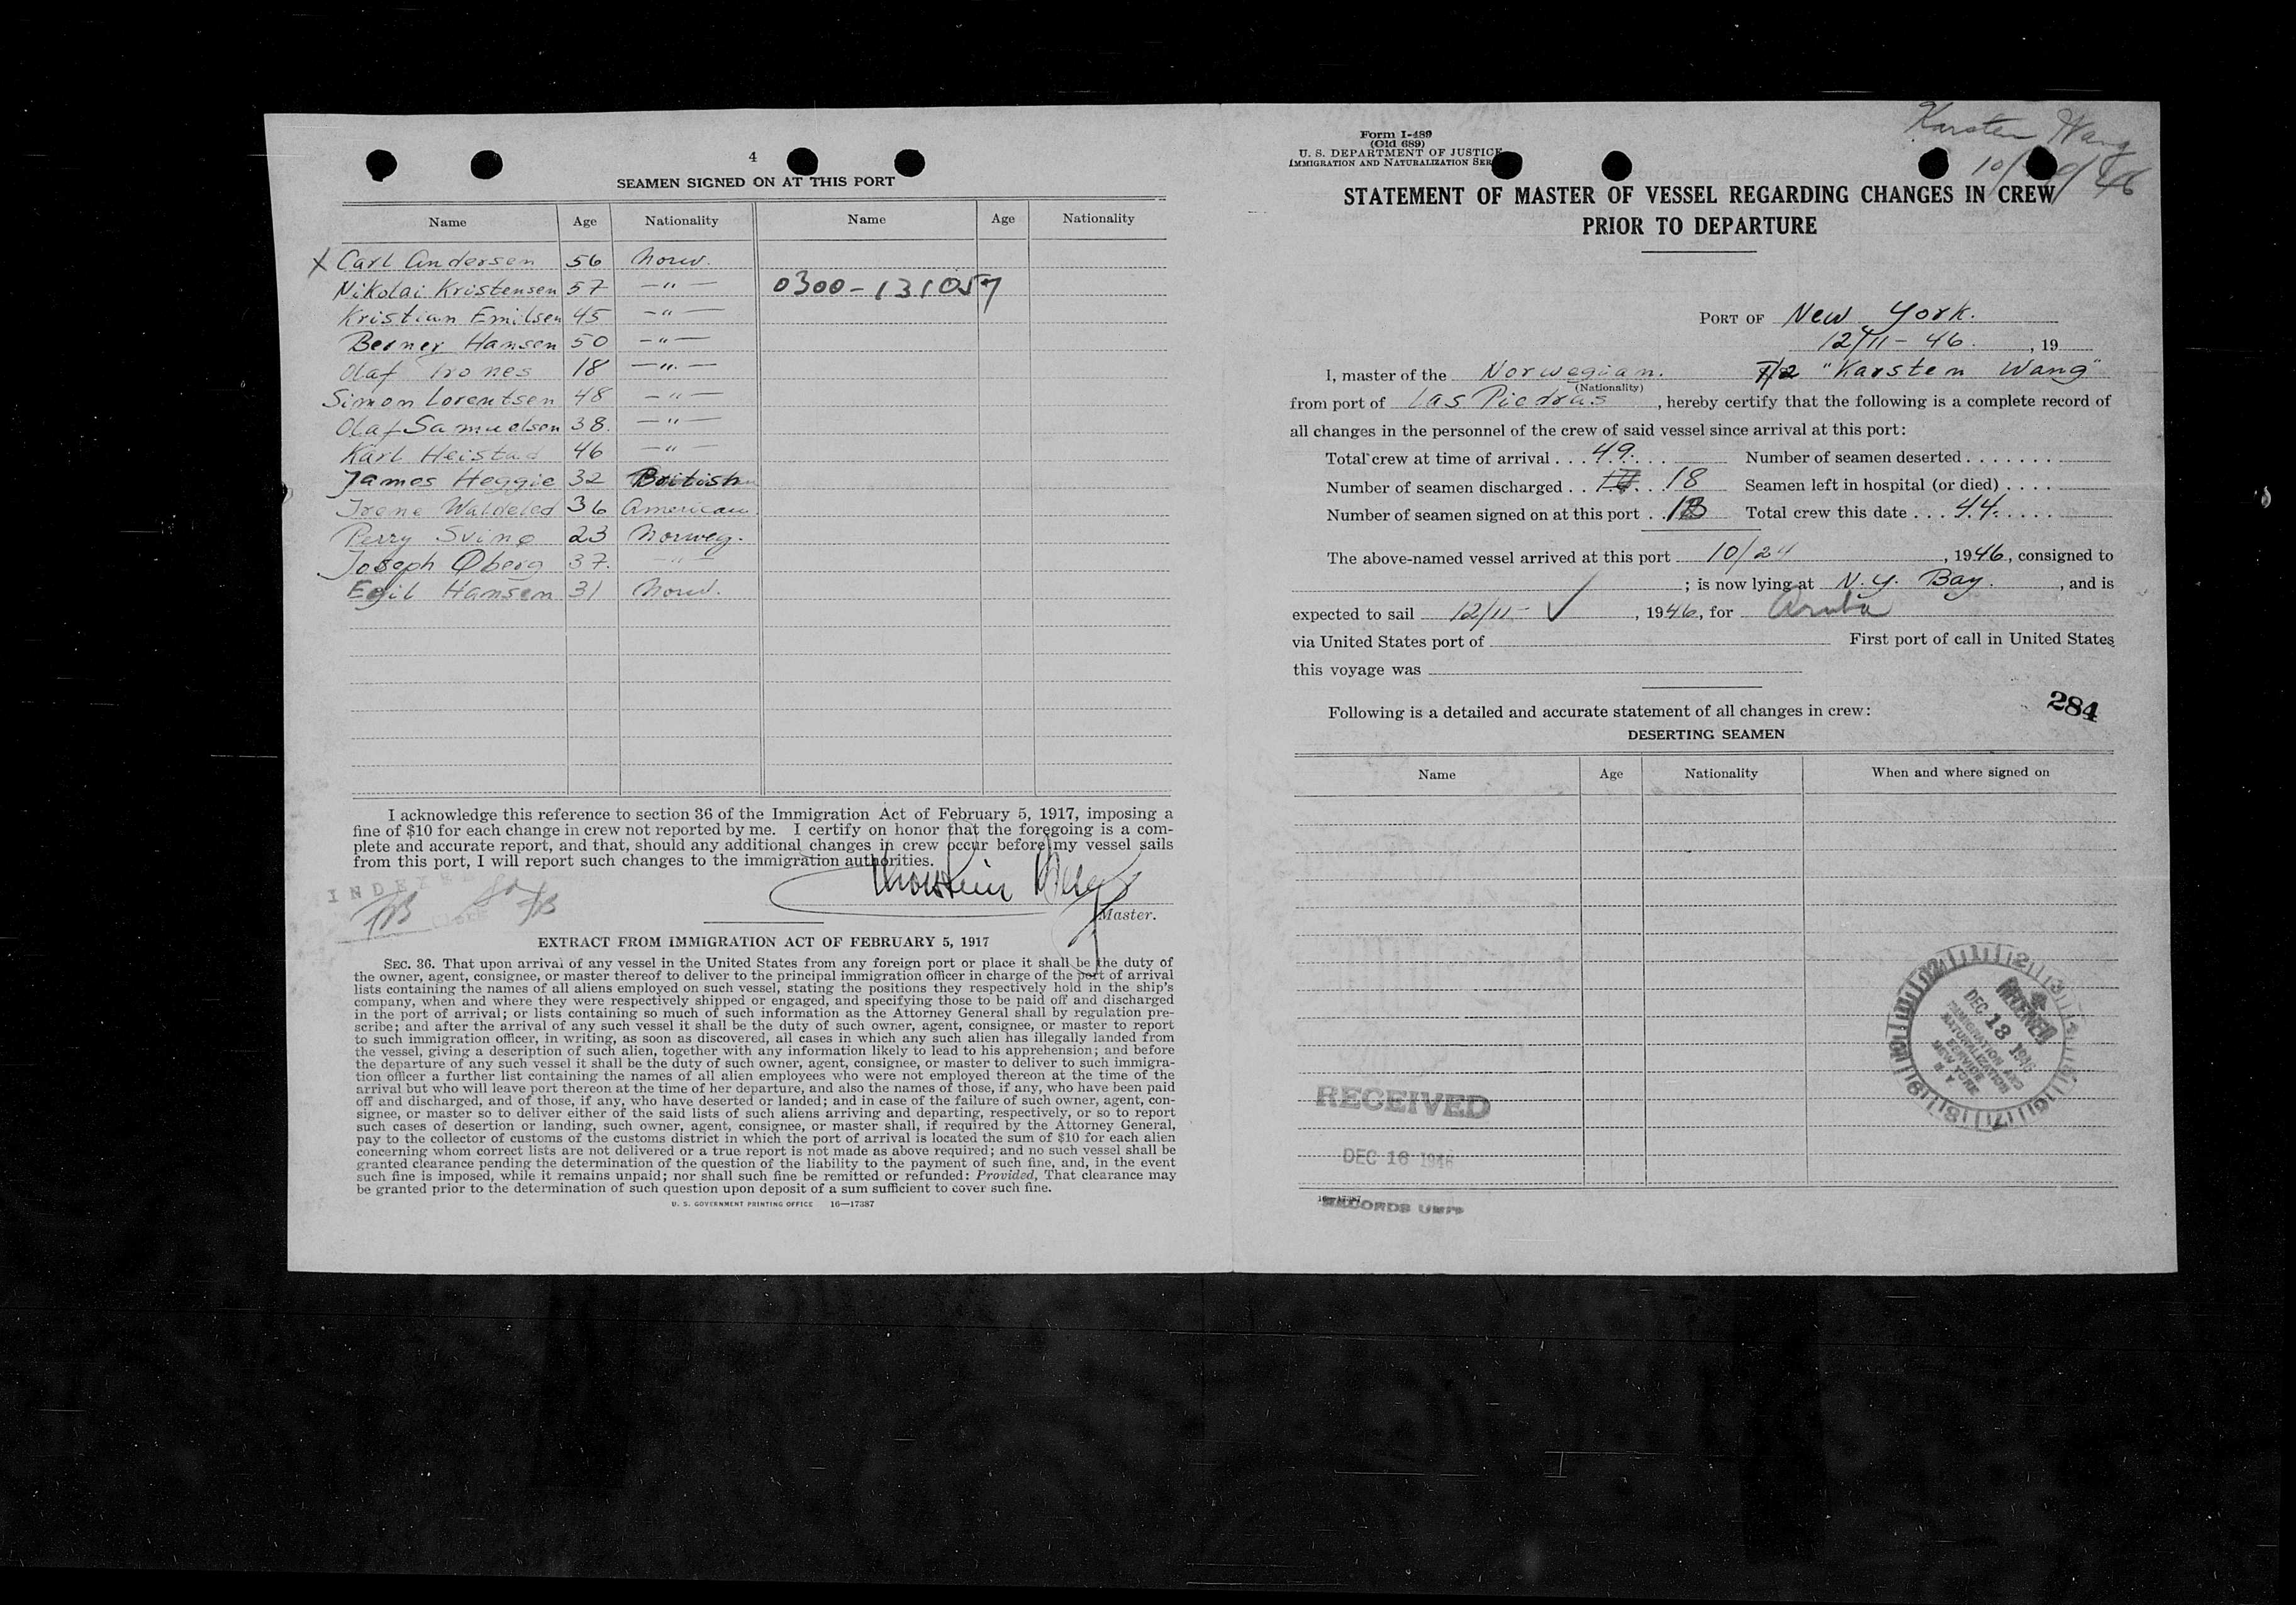 4
SEAMEN SIGNED ON AT THIS PORT
Name Age Nationality Name Age Nationality
X Carl Andersen 56 Norw.
Nikolai Kristensen 57 — " — 0300-131057
Kristian Emilsen 45 — " —
Berner Hansen 50 — " —
Olaf Trones 18 — " —
Simon Lorentsen 48 — " —
Olaf Samuelsen 38. — " —
Karl Heistad 46 — " —
James Heggie 32 British
Irene Waldeled 36 American
Perry Sving 23 Norweg.
Joseph Øberg 37. — " —
Egil Hansen 31 Norw.
I acknowledge this reference to section 36 of the Immigration Act of February 5, 1917, imposing a
fine of $10 for each change in crew not reported by me. I certify on honor that the foregoing is a com-
plete and accurate report, and that, should any additional changes in crew occur before my vessel sails
from this port, I will report such changes to the immigration authorities.
INDEXED
Master.
EXTRACT FROM IMMIGRATION ACT OF FEBRUARY 5, 1917
SEC. 36. That upon arrival of any vessel in the United States from any foreign port or place it shall be the duty of
the owner, agent, consignee, or master thereof to deliver to the principal immigration officer in charge of the port of arrival
lists containing the names of all aliens employed on such vessel, stating the positions they respectively hold in the ship's
company, when and where they were respectively shipped or engaged, and specifying those to be paid off and discharged
in the port of arrival; or lists containing so much of such information as the Attorney General shall by regulation pre-
scribe; and after the arrival of any such vessel it shall be the duty of such owner, agent, consignee, or master to report
to such immigration officer, in writing, as soon as discovered, all cases in which any such alien has illegally landed from
the vessel, giving a description of such alien, together with any information likely to lead to his apprehension; and before
the departure of any such vessel it shall be the duty of such owner, agent, consignee, or master to deliver to such immigra-
tion officer a further list containing the names of all alien employees who were not employed thereon at the time of the
arrival but who will leave port thereon at the time of her departure, and also the names of those, if any, who have been paid
off and discharged, and of those, if any, who have deserted or landed; and in case of the failure of such owner, agent, con-
signee, or master so to deliver either of the said lists of such aliens arriving and departing, respectively, or so to report
such cases of desertion or landing, such owner, agent, consignee, or master shall, if required by the Attorney General,
pay to the collector of customs of the customs district in which the port of arrival is located the sum of $10 for each alien
concerning whom correct lists are not delivered or a true report is not made as above required; and no such vessel shall be
granted clearance pending the determination of the question of the liability to the payment of such fine, and, in the event
such fine is imposed, while it remains unpaid; nor shall such fine be remitted or refunded: Provided, That clearance may
be granted prior to the determination of such question upon deposit of a sum sufficient to cover such fine.
U. S. GOVERNMENT PRINTING OFFICE 16—17387
Karsten Wang
Form I-489
(Old 689)
U. S. DEPARTMENT OF JUSTICE
IMMIGRATION AND NATURALIZATION SER
STATEMENT OF MASTER OF VESSEL REGARDING CHANGES IN CREW
PRIOR TO DEPARTURE
PORT OF New York.
12/11-46. , 19
I, master of the Norwegian. "Karsten Wang"
(Nationality)
from port of Las Piedras , hereby certify that the following is a complete record of
all changes in the personnel of the crew of said vessel since arrival at this port:
Total crew at time of arrival . . . 49. Number of seamen deserted . . . . . . .
Number of seamen discharged . . 18 Seamen left in hospital (or died) . . . .
Number of seamen signed on at this port . . 13 Total crew this date . . . 44. . . . . .
The above-named vessel arrived at this port 10/24 , 1946, consigned to
; is now lying at N.Y. Bay. , and is
expected to sail 12/11- ✓ , 1946, for Aruba
via United States port of First port of call in United States
this voyage was
Following is a detailed and accurate statement of all changes in crew:
284
DESERTING SEAMEN
Name Age Nationality When and where signed on
RECEIVED
DEC 13 1946
IMMIGRATION AND
NATURALIZATION
SERVICE
NEW YORK
N. Y.
RECEIVED
DEC 16 1946
16—17387
RECORDS UNIT